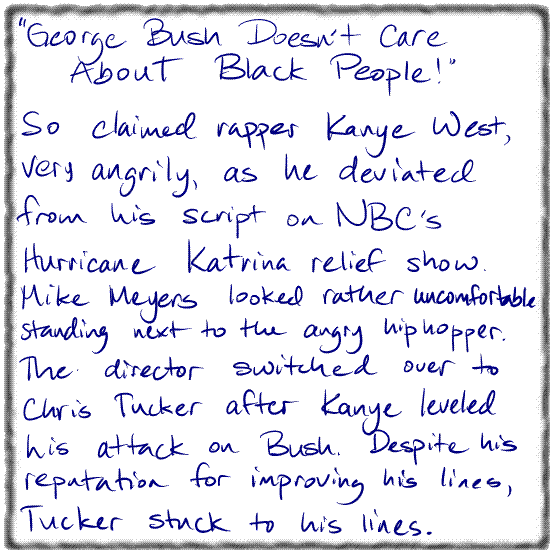 "George Bush Doesn't Care
About Black People!"
So claimed rapper Kanye West,
very angrily, as he deviated
from his script on NBC's
Hurricane Katrina relief show.
Mike Meyers looked rather uncomfortable
standing next to the angry hiphopper.
The director switched over to
Chris Tucker after Kanye leveled
his attack on Bush. Despite his
reputation for improving his lines,
Tucker stuck to his lines.